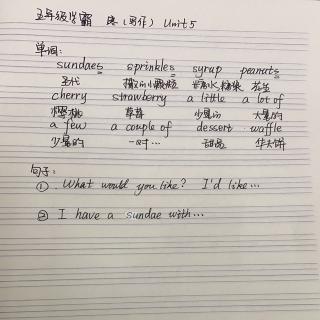 五年级学霸 (写作) Unit 5
单词:
sundaes sprinkles syrup peanuts
圣代 撒的小颗粒 糖水,糖浆 花生
cherry strawberry a little a lot of
樱桃 草莓 少量的 大量的
a few a couple of dessert waffle
少量的 一对… 甜品 华夫饼
句子:
①. What would you like? I'd like…
② I have a sundae with…